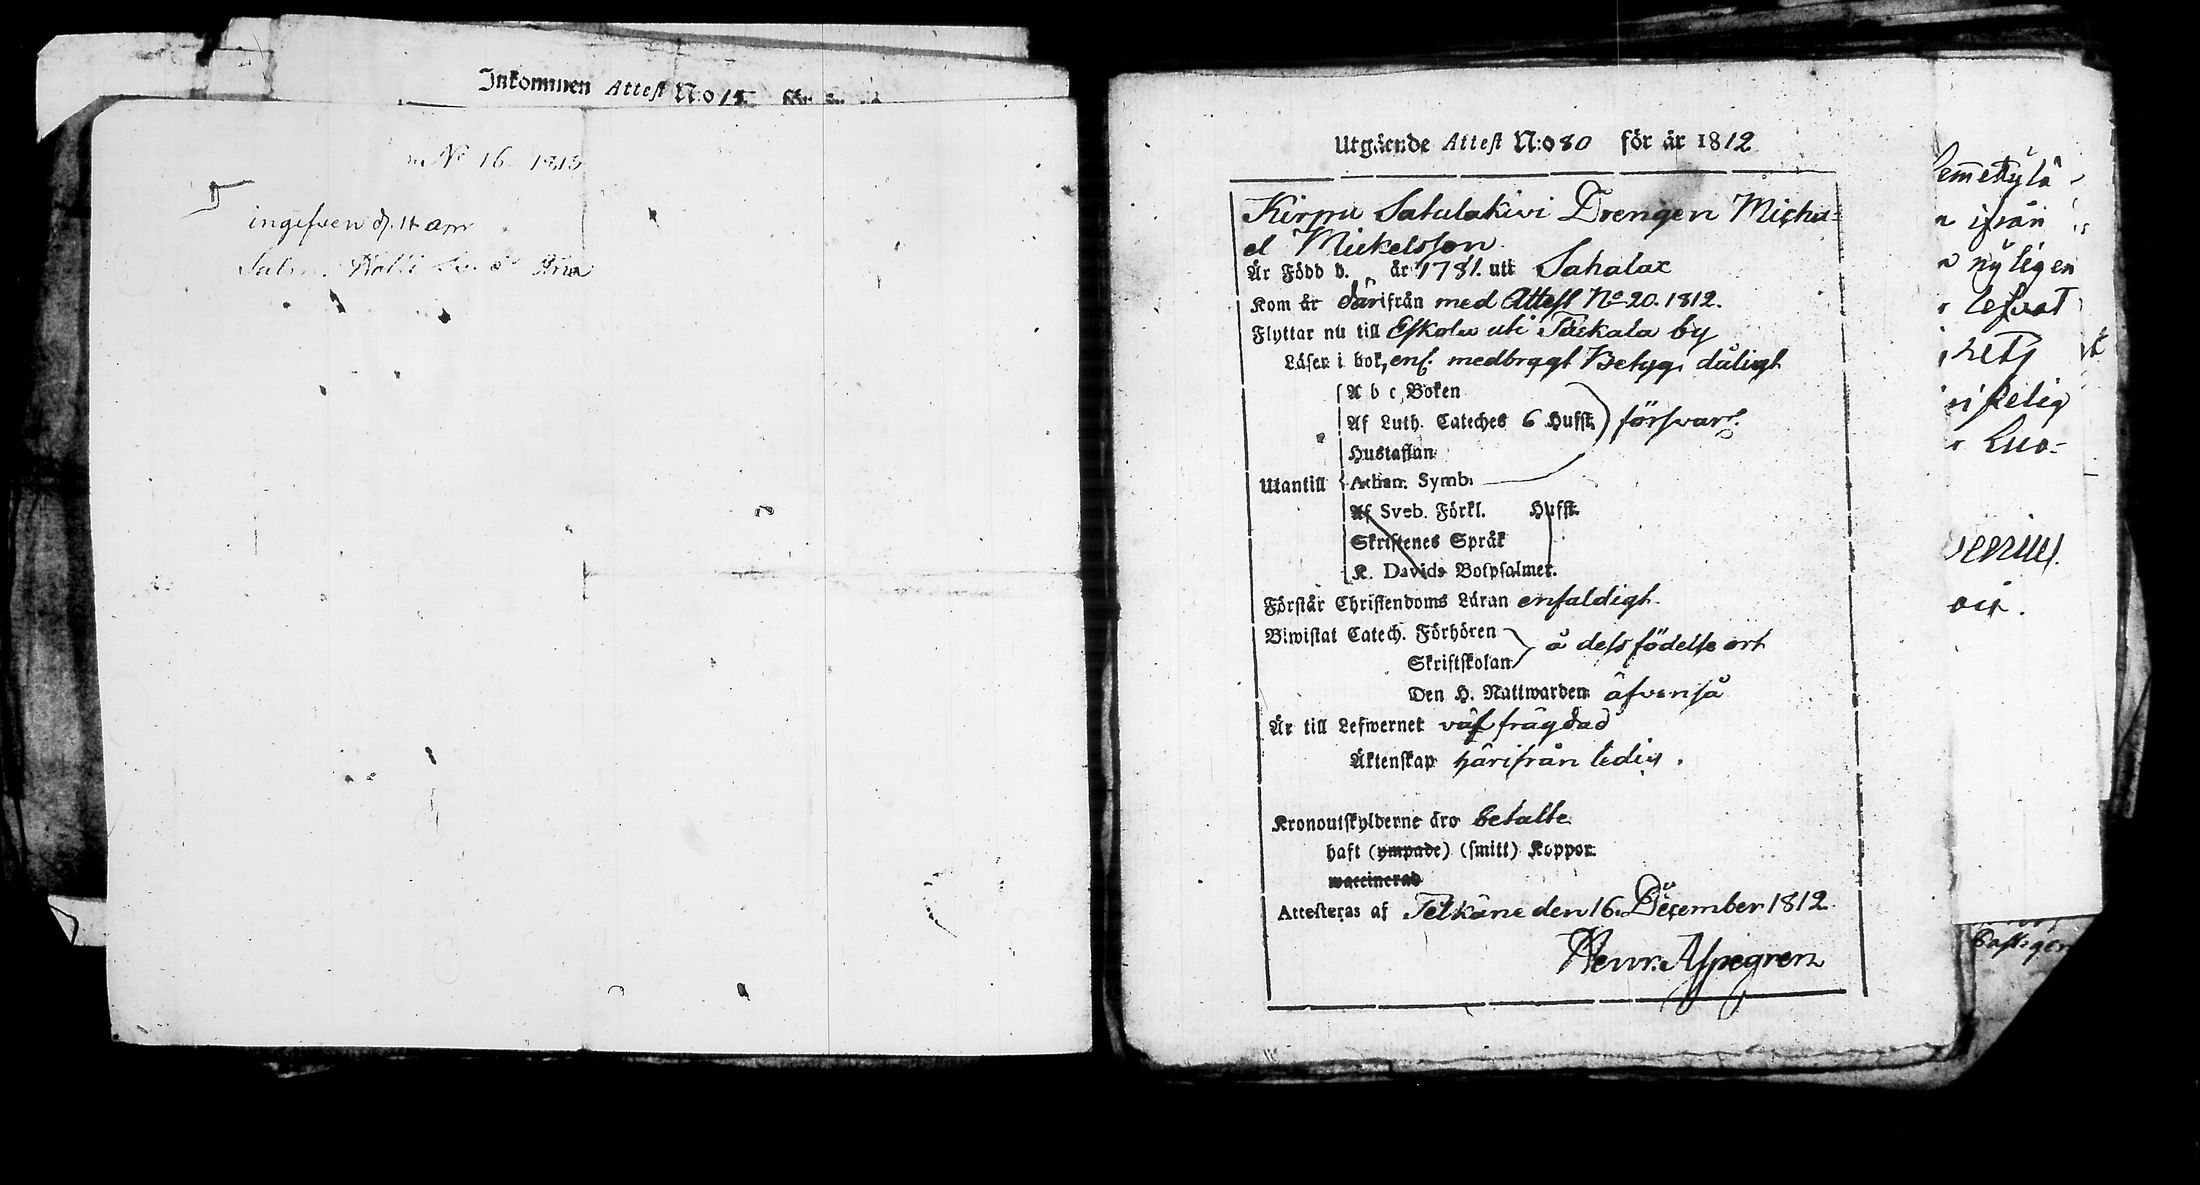 Inkommen Attest N:o 15.
N:o 16 1813
ingifven d. 14 apr
Utgående Attest N:o 80 för år 1812
Kirpu Satulakivi Drengen Micha-
el Mickelsson.
Är Född d. „ år 1781. uti Sahalax
Kom år därifrån med Attest No 20. 1812.
Flyttar nu till Eskola uti Täckala by
Läser i bok, enl. medbragt Betyg, dåligt
A b c, Boken
Af Luth. Cateches 6 Hufst. försvarl.
Hustaflan
Utantill Athan. Symb.
Af Sveb. Förkl. Hufst.
Skriftenes Språk
K. Davids Botpsalmer.
Förstår Christendoms Läran enfaldigt.
Biwistat Catech. Förhören
Skriftskolan å dess födelse ort
Den H. Nattwarden äfvenså
Är till Lefwernet väl frägdad
Äktenskap härifrån ledig.
Kronoutskylderne äro betalte
haft (ympade) (smitt) Koppor.
waccinerad
Attesteras af Pelkäne den 16. December 1812.
Henr. Aspegren
ifrån
nyligen